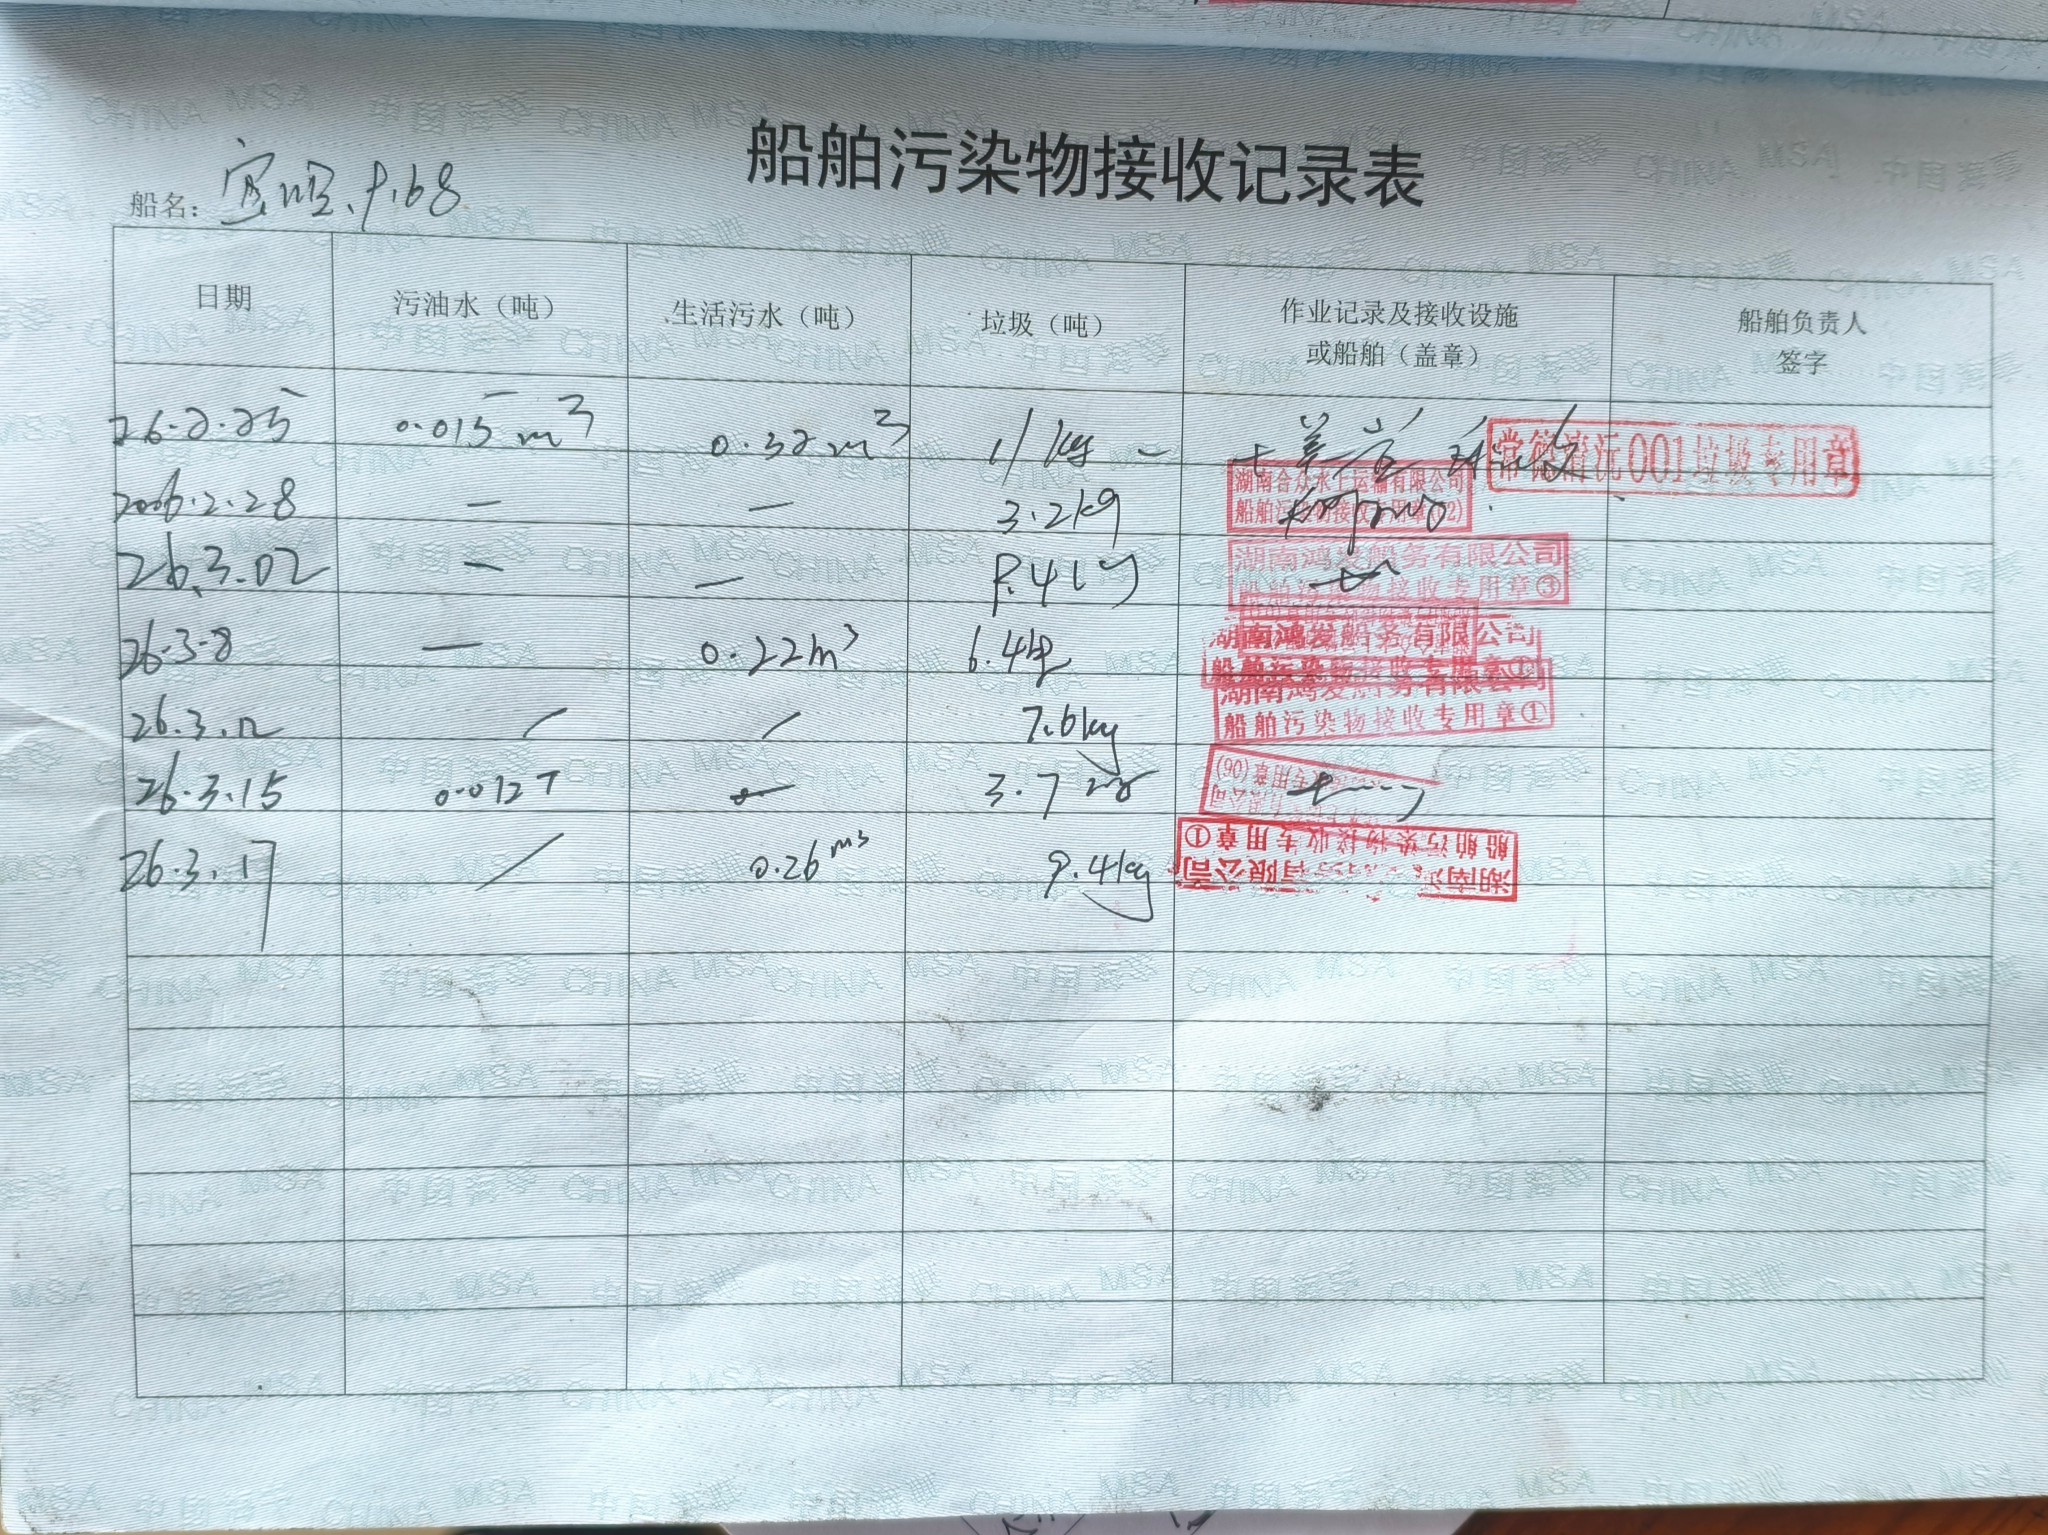 船舶污染物接收记录表
船名：
日期 污油水（吨） 生活污水（吨） 垃圾（吨） 作业记录及接收设施 船舶负责人
或船舶（盖章） 签字
26.2.25 0.015m³ 0.32m³ 11kg 常德清沅001垃圾专用章
2006.2.28 — — 3.2kg 湖南合众水上运输有限公司
26.3.02 — — 湖南鸿发船务有限公司
船舶污染物接收专用章③
26.3.8 — 0.22m³ 6.4kg 湖南鸿发船务有限公司
船舶污染物接收专用章①
26.3.12 / / 7.6kg 湖南鸿发船务有限公司
船舶污染物接收专用章①
26.3.15 0.012T — 3.7 专用章(06)
26.3.17 / 0.26m³ 9.4kg 船舶污染物接收专用章①
湖南 有限公司